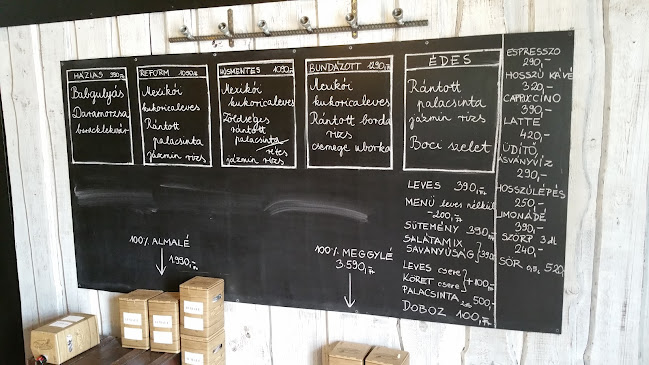 HÁZIAS 990,-Ft
Babgulyás
Daramorzsa
baracklekvár
REFORM 1090,-Ft
Mexikói
kukoricaleves
Rántott
palacsinta
jázmin rizs
HÚSMENTES 1090,-Ft
Mexikói
kukoricaleves
Zöldséges
rántott
palacsinta
rétes
jázmin rizs
BUNDÁZOTT 1290,-Ft
Mexikói
kukoricaleves
Rántott borda
rizs
csemege uborka
ÉDES
Rántott
palacsinta
jázmin rizs
Boci szelet
LEVES 390,-Ft
MENÜ leves nélkül
-200,-Ft
SÜTEMÉNY 390,-Ft
SALÁTAMIX
SAVANYÚSÁG } 390,-
LEVES csere
KÖRET csere } +100,-
PALACSINTA 500,-
DOBOZ 100,-Ft
ESPRESSZO
290,-
HOSSZÚ KÁVÉ
320,-
CAPPUCCINO
390,-
LATTE
420,-
ÜDÍTŐ
ÁSVÁNYVÍZ
290,-
HOSSZÚLÉPÉS
250,-
LIMONÁDÉ
390,-
SZÖRP 3 dl
240,-
SÖR 0,5L 520,-
100% ALMALÉ
1990,-Ft
100% MEGGYLÉ
3.590,-Ft